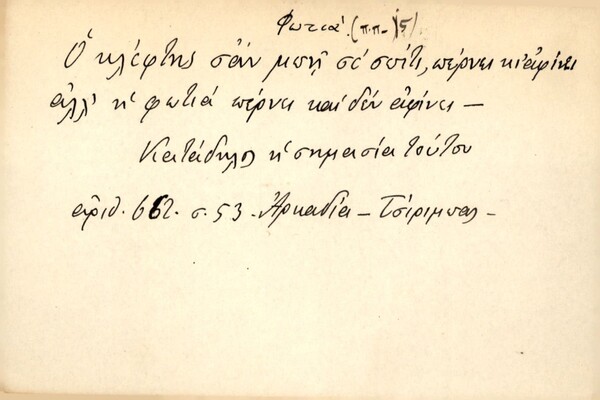 Φωτιά. (π.π.-) 5).
Ὁ κλέφτης σάν μπῇ σέ σπίτι, πέρνει κι' ἀφίνει
ἀλλ' ἡ φωτιά πέρνει καί δέν ἀφίνει –
Κατάδηλος ἡ σημασία τούτου
ἀριθ. 662. σ. 53 - Ἀρκαδία – Τσίριμπας –